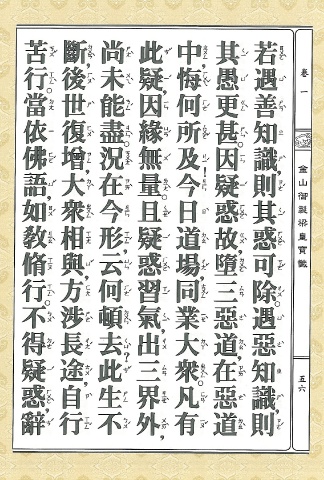 若遇善知識，則其惑可除。遇惡知識，則
其愚更甚。因疑惑故，墮三惡道。在惡道
中，悔何所及！今日道場，同業大眾，凡有
此疑，因緣無量。且疑惑習氣，出三界外，
尚未能盡，況在今形，云何頓去？此生不
斷，後世復增。大眾相與，方涉長途，自行
苦行，當依佛語，如教脩行。不得疑惑，辭
卷一
金山御製梁皇寶懺
五六